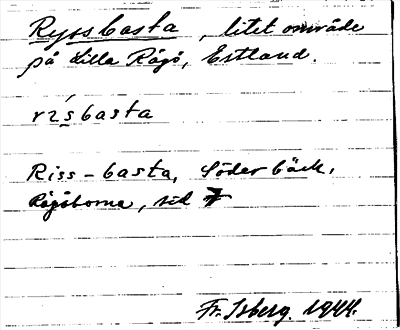 Ryssbasta, litet område
på Lilla Rågö, Estland.
rísbasta
Riss-basta, Söderbäck,
Rågöborna, sid 7
Fr. Isberg 1944.